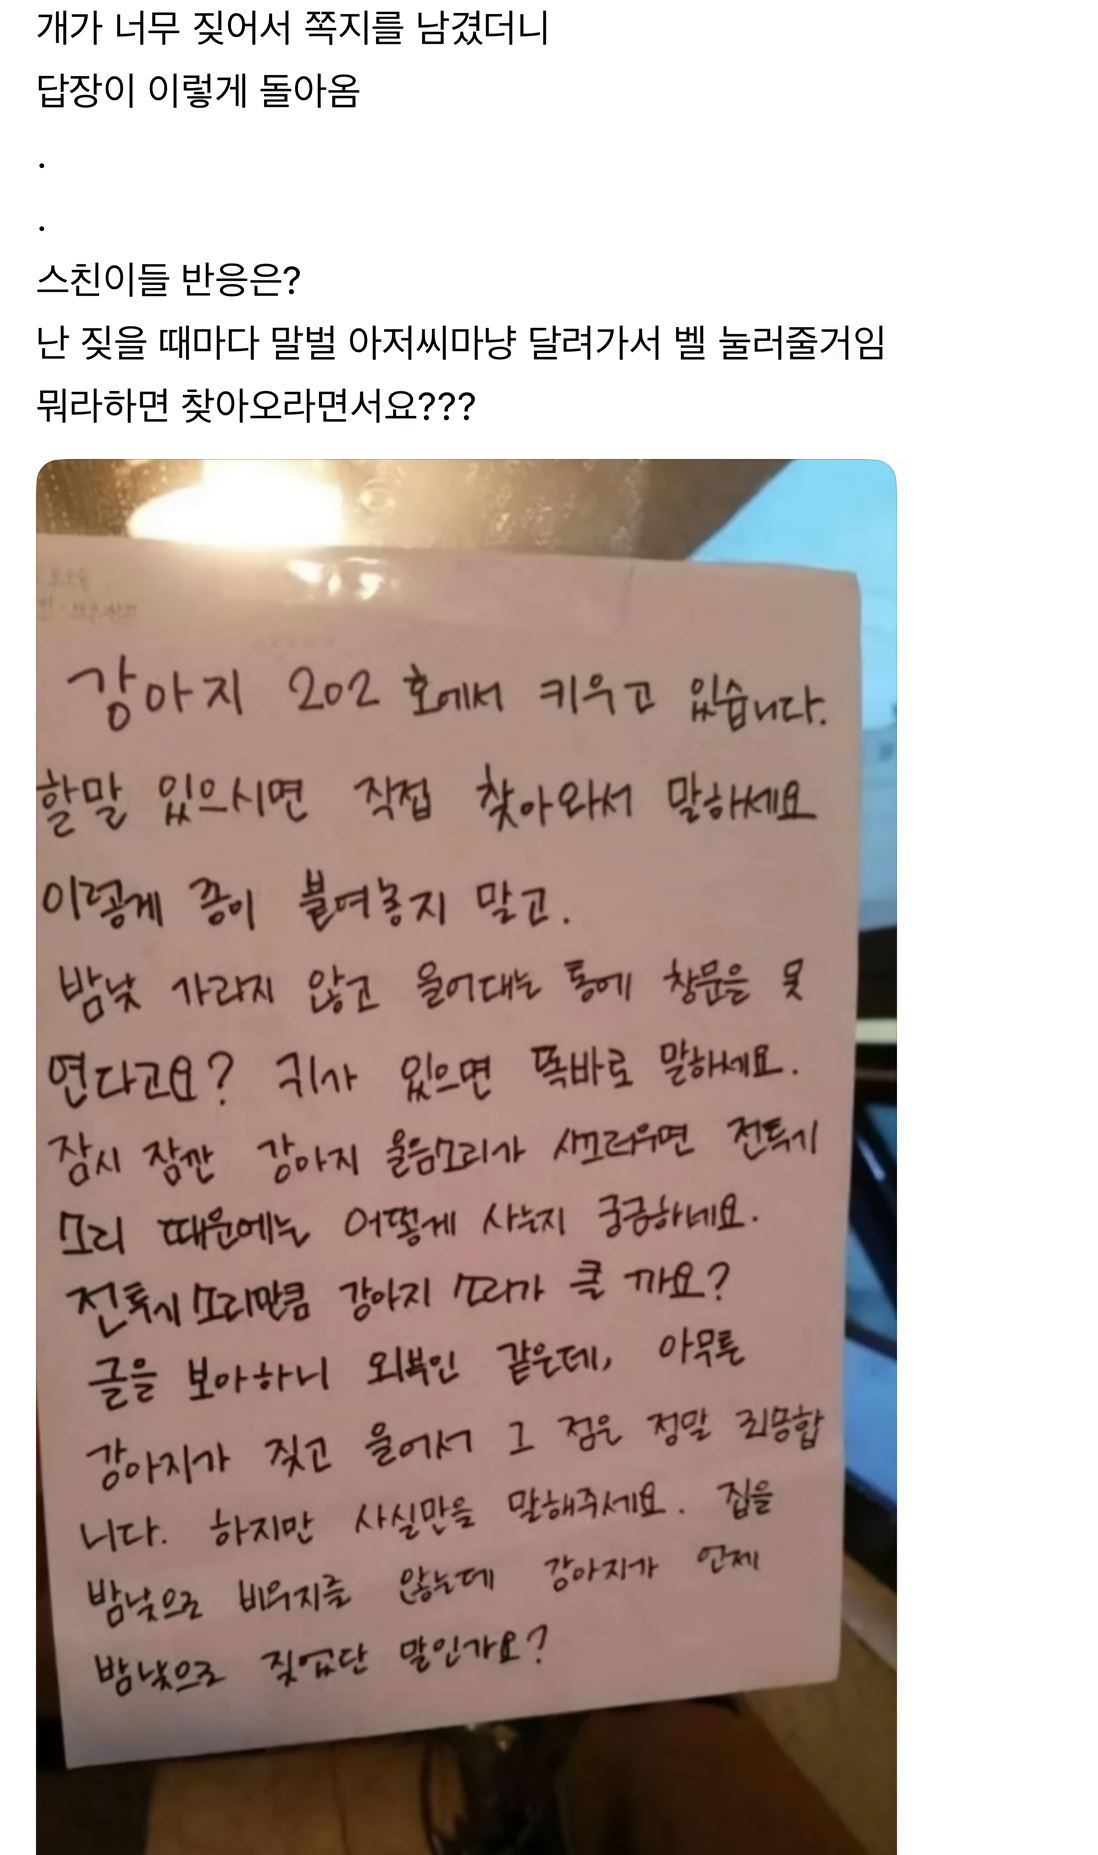 개가 너무 짖어서 쪽지를 남겼더니
답장이 이렇게 돌아옴
.
.
스친이들 반응은?
난 짖을 때마다 말벌 아저씨마냥 달려가서 벨 눌러줄거임
뭐라하면 찾아오라면서요???
강아지 202 호에서 키우고 있습니다.
할말 있으시면 직접 찾아와서 말하세요
이렇게 종이 붙여놓지 말고.
밤낮 가리지 않고 울어대는 통에 창문을 못
연다고요? 귀가 있으면 똑바로 말하세요.
잠시 잠깐 강아지 울음소리가 시끄러우면 전투기
소리 때문에는 어떻게 사는지 궁금하네요.
전투기 소리만큼 강아지 소리가 클 까요?
글을 보아하니 외부인 같은데, 아무튼
강아지가 짖고 울어서 그 점은 정말 죄송합
니다. 하지만 사실만을 말해주세요. 집을
밤낮으로 비우지를 않는데 강아지가 언제
밤낮으로 짖었단 말인가요?